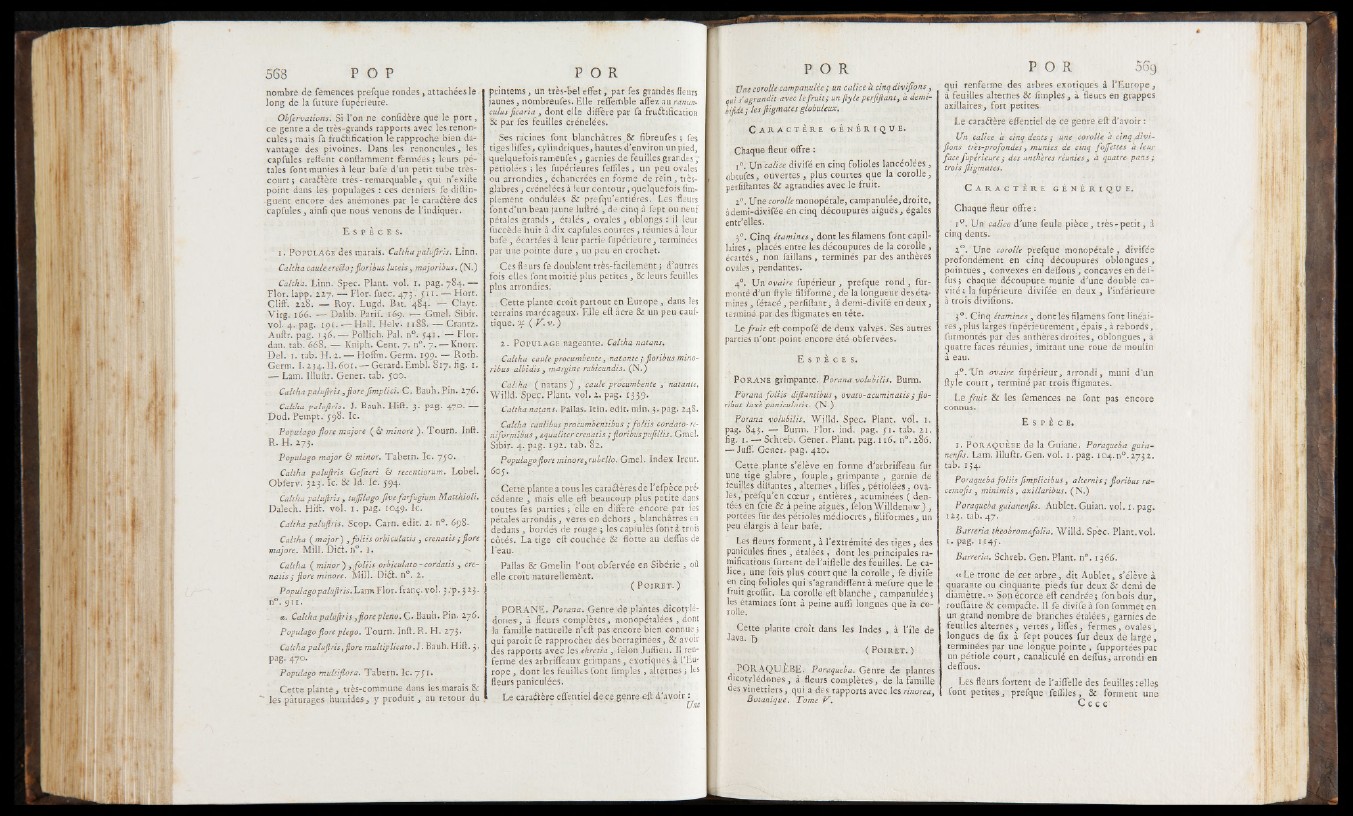 568 P O P
nombre de ſemences preſque rondes, attachées le
long de la ſuture ſupérieure.
Obſervations. Si l'on ne conſidère que le port,
ce genre a de très-grands rapports avec les renon-
cules; mais ſa fructification le rapproche bien da-
vantage des pivoines. Dans les renoncules, les
capſules reſtent conſtamment fermées; leurs pé-
tales ſont munies à leur baſe d'un petit tube très-
court; caractère très-remarquable, qui n'exiſte
point dans les populages : ces derniers ſe diſtin-
guent encore des anémones par le caractère des
capſules, ainſi que nous venons de l'indiquer.
E S P È C E S.
1. POPULAGE des marais. Caltha paluſtris. Linn.
Caltha caule erecto; floribus luteis, majoribus. (N.)
Caltha. Linn. Spec. Plant. vol. 1. pag. 784. —
Flor. lapp. 227. — Flor. ſuec. 473. 511. — Hort.
Cliff. 228. — Roy. Lugd. Bat. 484. — Clayt.
Virg. 166. — Dalib. Pariſ. 169. — Gmel. Sibir.
vol. 4. pag. 191. — Hall. Helv. 1188. — Crantz.
Auſtr. pag. 136. — Pollich. Pal. n°. 541. — Flor.
dan. tab. 668. — Kniph. Cent. 7. n°. 7. — Knorr.
Del. 1. tab. H. 2. — Hoffm. Germ. 199. — Roth.
Germ. I. 234. II. 601. — Gerard. Embl. 817. fig. 1.
— Lam. Illuſtr. Gener. tab. 500.
Caltha paluſtris, flore ſimplici. C. Bauh. Pin. 276.
Caltha paluſtris. J. Bauh. Hiſt. 3. pag. 470. —
Dod. Pempt. 598. Ic.
Populago flore majore (& minore). Tourn. Inſt.
R. H. 273.
Populago major & minor. Tabern. Ic. 750.
Caltha paluſtris Geſneri & recentiorum. Lobel.
Obſerv. 323. Ic. & Id. Ic. 594.
Caltha paluſtris, tuſſilago ſive farfugium Matthioli.
Dalech. Hiſt. vol. 1. pag. 1049. Ic.
Caltha paluſtris. Scop. Carn. edit. 2. n°. 698.
Caltha (major), foliis orbiculatis, crenatis; flore
majore. Mill. Dict. n°. 1.
Caltha (minor), foliis orbiculato-cordatis, cre-
natis; flore minore. Mill. Dict. n°. 2.
Populago paluſtris. Lam. Flor. franç. vol. 3. p. 323.
n°. 911.
α. Caltha paluſtris, flore pleno. C. Bauh. Pin. 276.
Populago flore pleno. Tourn. Inſt. R. H. 273.
Caltha paluſtris, flore multiplicato. J. Bauh. Hiſt. 3.
pag. 470.
Populago multiflora. Tabern. Ic. 751.
Cette plante, très-commune dans les marais &
les pâturages humides, y produit, au retour du
P O R
printems, un très-bel effet, par ſes grandes fleurs
jaunes, nombreuſes. Elle reſſemble aſſez au ranun-
culus ficaria, dont elle diffère par ſa fructification
& par ſes feuilles crénelées.
Ses racines ſont blanchâtres & fibreuſes; ſes
tiges liſſes, cylindriques, hautes d'environ un pied,
quelquefois rameuſes, garnies de feuilles grandes,
pétiolées; les ſupérieures ſeſſiles, un peu ovales
ou arrondies, échancrées en forme de rein, très-
glabres, crénelées à leur contour, quelquefois ſim-
plement ondulées & preſqu'entières. Les fleurs
ſont d'un beau jaune luſtré, de cinq à ſept ou neuf
pétales grands, étalés, ovales, oblongs : il leur
ſuccède huit à dix capſules courtes, réunies à leur
baſe, écartées à leur partie ſupérieure, terminées
par une pointe dure, un peu en crochet.
Ces fleurs ſe doublent très-facilement; d'autres
fois elles ſont moitié plus petites, & leurs feuilles
plus arrondies.
Cette plante croît partout en Europe, dans les
terrains marécageux. Elle eſt âcre & un peu cauſ-
tique. ♃ (V. v.)
2. POPULAGE nageante. Caltha natans.
Caltha caule procumbente, natante; floribus mino-
ribus albidis, margine rubicundis. (N.)
Caltha (natans), caule procumbente, natante.
Willd. Spec. Plant. vol. 2. pag. 1339.
Caltha natans. Pallas. Itin. edit. min. 3. pag. 248.
Caltha caulibus procumbentibus; foliis cordato-re-
niformibus, æqualiter crenatis; floribus puſillis. Gmel.
Sibir. 4. pag. 192. tab. 82.
Populago flore minore, rubello. Gmel. Index Ircut.
605.
Cette plante a tous les caractères de l'eſpèce pré-
cédente, mais elle eſt beaucoup plus petite dans
toutes ſes parties; elle en diffère encore par ſes
pétales arrondis, verts en dehors, blanchâtres en
dedans, bordés de rouge; les capſules ſont à trois
côtés. La tige eſt couchée & flotte au deſſus de
l'eau.
Pallas & Gmelin l'ont obſervée en Sibérie, où
elle croît naturellement.
(POIRET.)
PORANE. Porana. Genre de plantes dicotylé-
dones, à fleurs complètes, monopétalées, dont
la famille naturelle n'eſt pas encore bien connue;
qui paroît ſe rapprocher des borraginées, & avoir
des rapports avec les ehretia, ſelon Juſſieu. Il ren-
ferme des arbriſſeaux grimpans, exotiques à l'Eu-
rope, dont les feuilles ſont ſimples, alternes; les
fleurs paniculées.
Le caractère eſſentiel de ce genre eſt d'avoir :
Une
P O R
Une corolle campanulée; un calice à cinq diviſions,
qui s'agrandit avec le fruit; un ſtyle perſiſtant, à demi-
bifide; les ſtigmates globuleux.
C A R A C T È R E G É N É R I Q U E.
Chaque fleur offre :
1°. Un calice diviſé en cinq folioles lancéolées,
obtuſes, ouvertes, plus courtes que la corolle,
perſiſtantes & agrandies avec le fruit.
2°. Une corolle monopétale, campanulée, droite,
à demi-diviſée en cinq découpures aiguës, égales
entr'elles.
3°. Cinq étamines, dont les filamens ſont capil-
laires, placés entre les découpures de la corolle,
écartés, non ſaillans, terminés par des anthères
ovales, pendantes.
4°. Un ovaire ſupérieur, preſque rond, ſur-
monté d'un ſtyle filiforme, de la longueur des éta-
mines, ſétacé, perſiſtant, à demi-diviſé en deux,
terminé par des ſtigmates en tête.
Le fruit eſt compoſé de deux valves. Ses autres
parties n'ont point encore été obſervées.
E S P È C E S.
PORANE grimpante. Porana volubilis. Burm.
Porana foliis diſtantibus, ovato-acuminatis; flo-
ribus laxè paniculatis. (N.)
Porana volubilis. Willd. Spec. Plant. vol. 1.
pag. 845. — Burm. Flor. ind. pag. 51. tab. 21.
fig. 1. — Schreb. Gener. Plant. pag. 116. n°. 286.
— Juſſ. Gener. pag. 420.
Cette plante s'élève en forme d'arbriſſeau ſur
une tige glabre, ſouple, grimpante, garnie de
feuilles diſtantes, alternes, liſſes, pétiolées, ova-
les, preſqu'en cœur, entières, acuminées (den-
tées en ſcie & à peine aiguës, ſelon Willdenow),
portées ſur des pétioles médiocres, filiformes, un
peu élargis à leur baſe.
Les fleurs forment, à l'extrémité des tiges, des
panicules fines, étalées, dont les principales ra-
mifications ſortent de l'aiſſelle des feuilles. Le ca-
lice, une fois plus court que la corolle, ſe diviſe
en cinq folioles qui s'agrandiſſent à meſure que le
fruit groſſit. La corolle eſt blanche, campanulée;
les étamines ſont à peine auſſi longues que la co-
rolle.
Cette plante croît dans les Indes, à l'île de
Java. ♄
(POIRET.)
PORAQUÈBE. Poraqueba. Genre de plantes
dicotylédones, à fleurs complètes, de la famille
des vinettiers, qui a des rapports avec les rinorea,
Botanique. Tome V.
P O R 569
qui renferme des arbres exotiques à l'Europe,
à feuilles alternes & ſimples, à fleurs en grappes
axillaires, fort petites.
Le caractère eſſentiel de ce genre eſt d'avoir :
Un calice à cinq dents; une corolle à cinq divi-
ſions très-profondes, munies de cinq foſſettes à leur
face ſupérieure; des anthères réunies, à quatre pans;
trois ſtigmates.
C A R A C T È R E G É N É R I Q U E.
Chaque fleur offre :
1°. Un calice d'une ſeule pièce, très-petit, à
cinq dents.
2°. Une corolle preſque monopétale, diviſée
profondément en cinq découpures oblongues,
pointues, convexes en deſſous, concaves en deſ-
ſus; chaque découpure munie d'une double ca-
vité : la ſupérieure diviſée en deux, l'inférieure
à trois diviſions.
3°. Cinq étamines, dont les filamens ſont linéai-
res, plus larges ſupérieurement, épais, à rebords,
ſurmontés par des anthères droites, oblongues, à
quatre faces réunies, imitant une roue de moulin
à eau.
4°. Un ovaire ſupérieur, arrondi, muni d'un
ſtyle court, terminé par trois ſtigmates.
Le fruit & les ſemences ne ſont pas encore
connus.
E S P È C E.
1. PORAQUÈBE de la Guiane. Poraqueba guia-
nenſis. Lam. Illuſtr. Gen. vol. 1. pag. 104. n°. 2732.
tab. 134.
Poraqueba foliis ſimplicibus, alternis; floribus ra-
cemoſis, minimis, axillaribus. (N.)
Poraqueba guianenſis. Aublet. Guian. vol. 1. pag.
123. tab. 47.
Barreria theobromæfolia. Willd. Spec. Plant. vol.
1. pag. 1145.
Barreria. Schreb. Gen. Plant. n°. 1366.
« Le tronc de cet arbre, dit Aublet, s'élève à
quarante ou cinquante pieds ſur deux & demi de
diamètre. » Son écorce eſt cendrée; ſon bois dur,
rouſſâtre & compacte. Il ſe diviſe à ſon ſommet en
un grand nombre de branches étalées, garnies de
feuilles alternes, vertes, liſſes, fermes, ovales,
longues de ſix à ſept pouces ſur deux de large,
terminées par une longue pointe, ſupportées par
un pétiole court, canaliculé en deſſus, arrondi en
deſſous.
Les fleurs ſortent de l'aiſſelle des feuilles : elles
ſont petites, preſque ſeſſiles, & forment une
C c c c